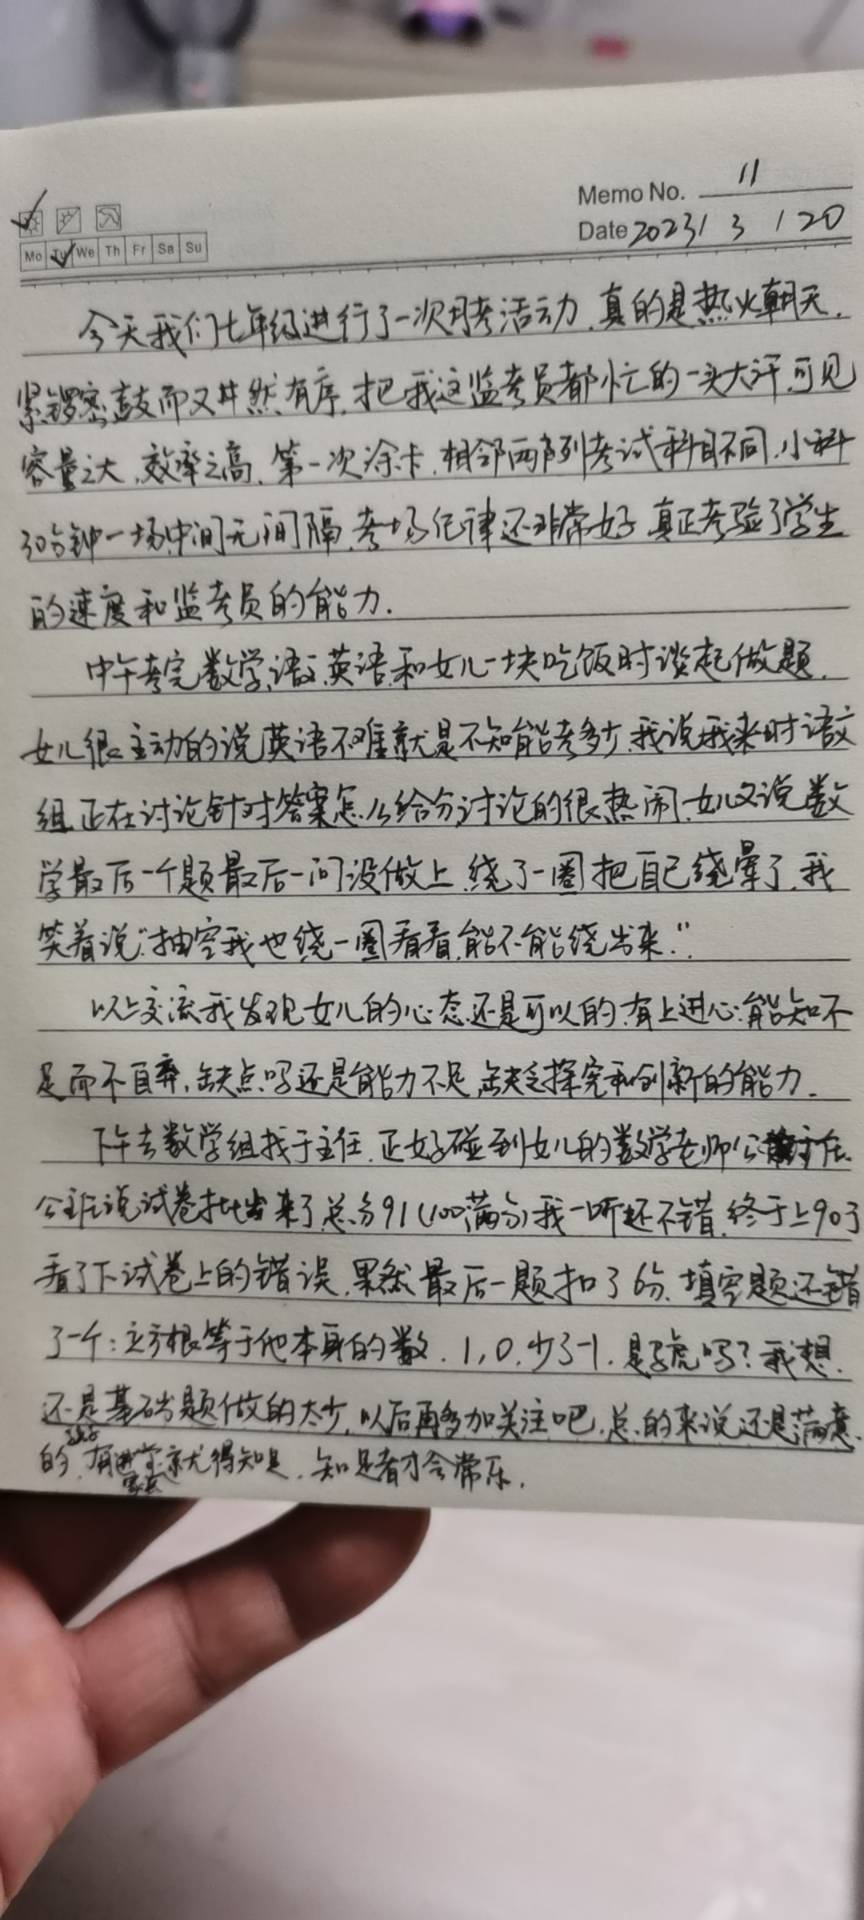 Memo No. 11
Mo Tu We Th Fr Sa Su
Date 2023 / 3 / 20
今天我们七年级进行了一次月考活动,真的是热火朝天,
紧锣密鼓而又井然有序,把我这监考员都忙的一头大汗,可见
容量之大,效率之高,第一次涂卡,相邻两列考试科目不同,小科
30分钟一场,中间无间隔,考场纪律还非常好,真正考验了学生
的速度和监考员的能力.
中午考完数学,语文,英语,和女儿一块吃饭时谈起做题,
女儿很主动的说英语不难就是不知能考多少,我说我来时语文
组正在讨论针对答案怎么给分讨论的很热闹,女儿又说数
学最后一个题最后一问没做上,绕了一圈把自己绕晕了,我
笑着说“抽空我也绕一圈看看,能不能绕出来.”
以上交流我发现女儿的心态还是可以的,有上进心,能知不
足而不自弃,缺点吗还是能力不足,缺乏探究和创新的能力.
下午去数学组找于主任,正好碰到女儿的数学老师公主任.
公主任说试卷批出来了总分91(100满分)我一听还不错,终于上90了
看了下试卷上的错误,果然最后一题扣了6分,填空题还错
了一个:立方根等于他本身的数,1,0,少了-1,是马虎吗?我想,
还是基础题做的太少,以后再多加关注吧,总的来说还是满意
的,有就得知足,知足者才会常乐.